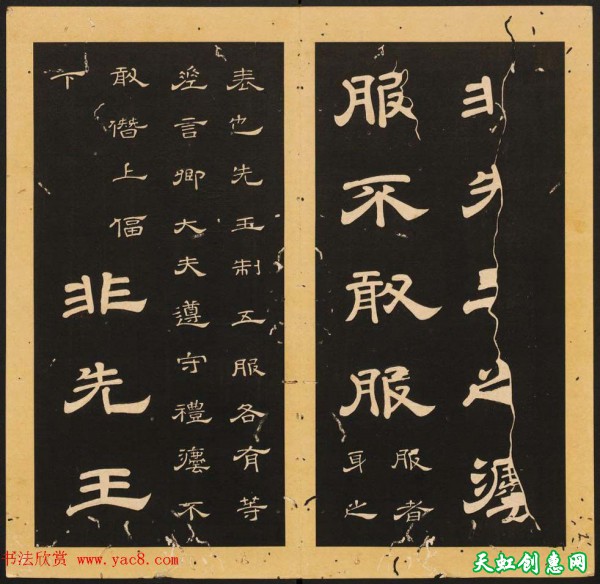 非先王之灋
服不敢服
服者
身之
表也先王制五服各有等
差言卿大夫遵守禮灋不
敢僭上偪
下
非先王
书法欣赏 www.yac8.com
天虹创意网